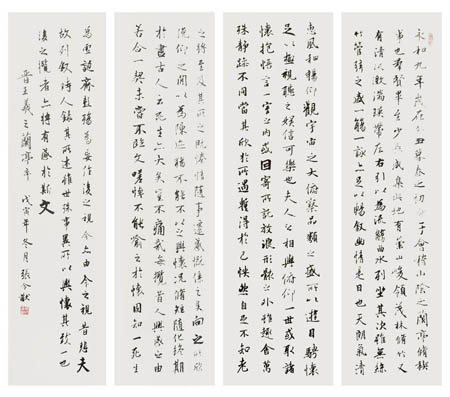 永和九年歲在癸丑暮春之初會于會稽山陰之蘭亭脩稧
事也羣賢畢至少長咸集此地有崇山峻領茂林脩竹又
有清流激湍暎帶左右引以為流觴曲水列坐其次雖無絲
竹管弦之盛一觴一詠亦足以暢敘幽情是日也天朗氣清
惠風和暢仰觀宇宙之大俯察品類之盛所以遊目騁懷
足以極視聽之娛信可樂也夫人之相與俯仰一世或取諸
懷抱悟言一室之內或因寄所託放浪形骸之外雖趣舍萬
殊靜躁不同當其欣於所遇蹔得於己怏然自足不知老
之將至及其所之既惓情隨事遷感慨係之矣向之所欣
俛仰之間以為陳迹猶不能不以之興懷況脩短隨化終期
於盡古人云死生亦大矣豈不痛哉每攬昔人興感之由
若合一契未嘗不臨文嗟悼不能喻之於懷固知一死生
為虛誕齊彭殤為妄作後之視今亦由今之視昔悲夫
故列敘時人錄其所述雖世殊事異所以興懷其致一也
後之攬者亦將有感於斯文
晉王羲之蘭亭序 戊寅年冬月張令